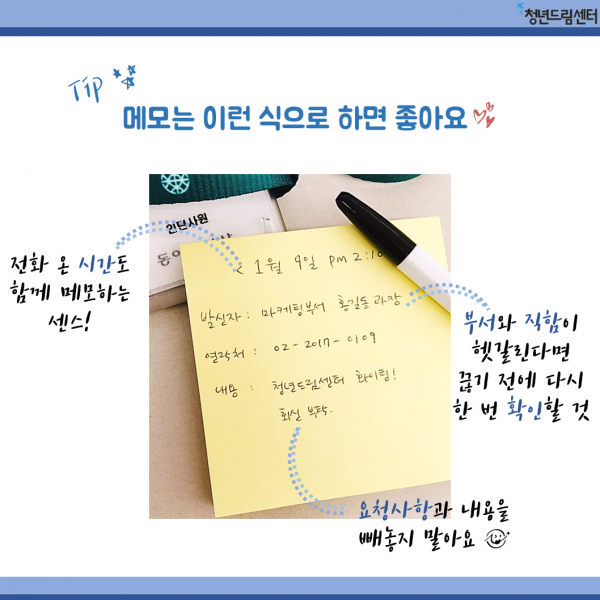 청년드림센터
Tip
메모는 이런 식으로 하면 좋아요
인턴사원
< 1월 9일 pm 2:10
발신자 : 마케팅부서 홍길동 과장
연락처 : 02-2017-0109
내용 : 청년드림센터 화이팅!
회신 부탁.
전화 온 시간도
함께 메모하는
센스!
부서와 직함이
헷갈린다면
끊기 전에 다시
한 번 확인할 것
요청사항과 내용을
빼놓지 말아요